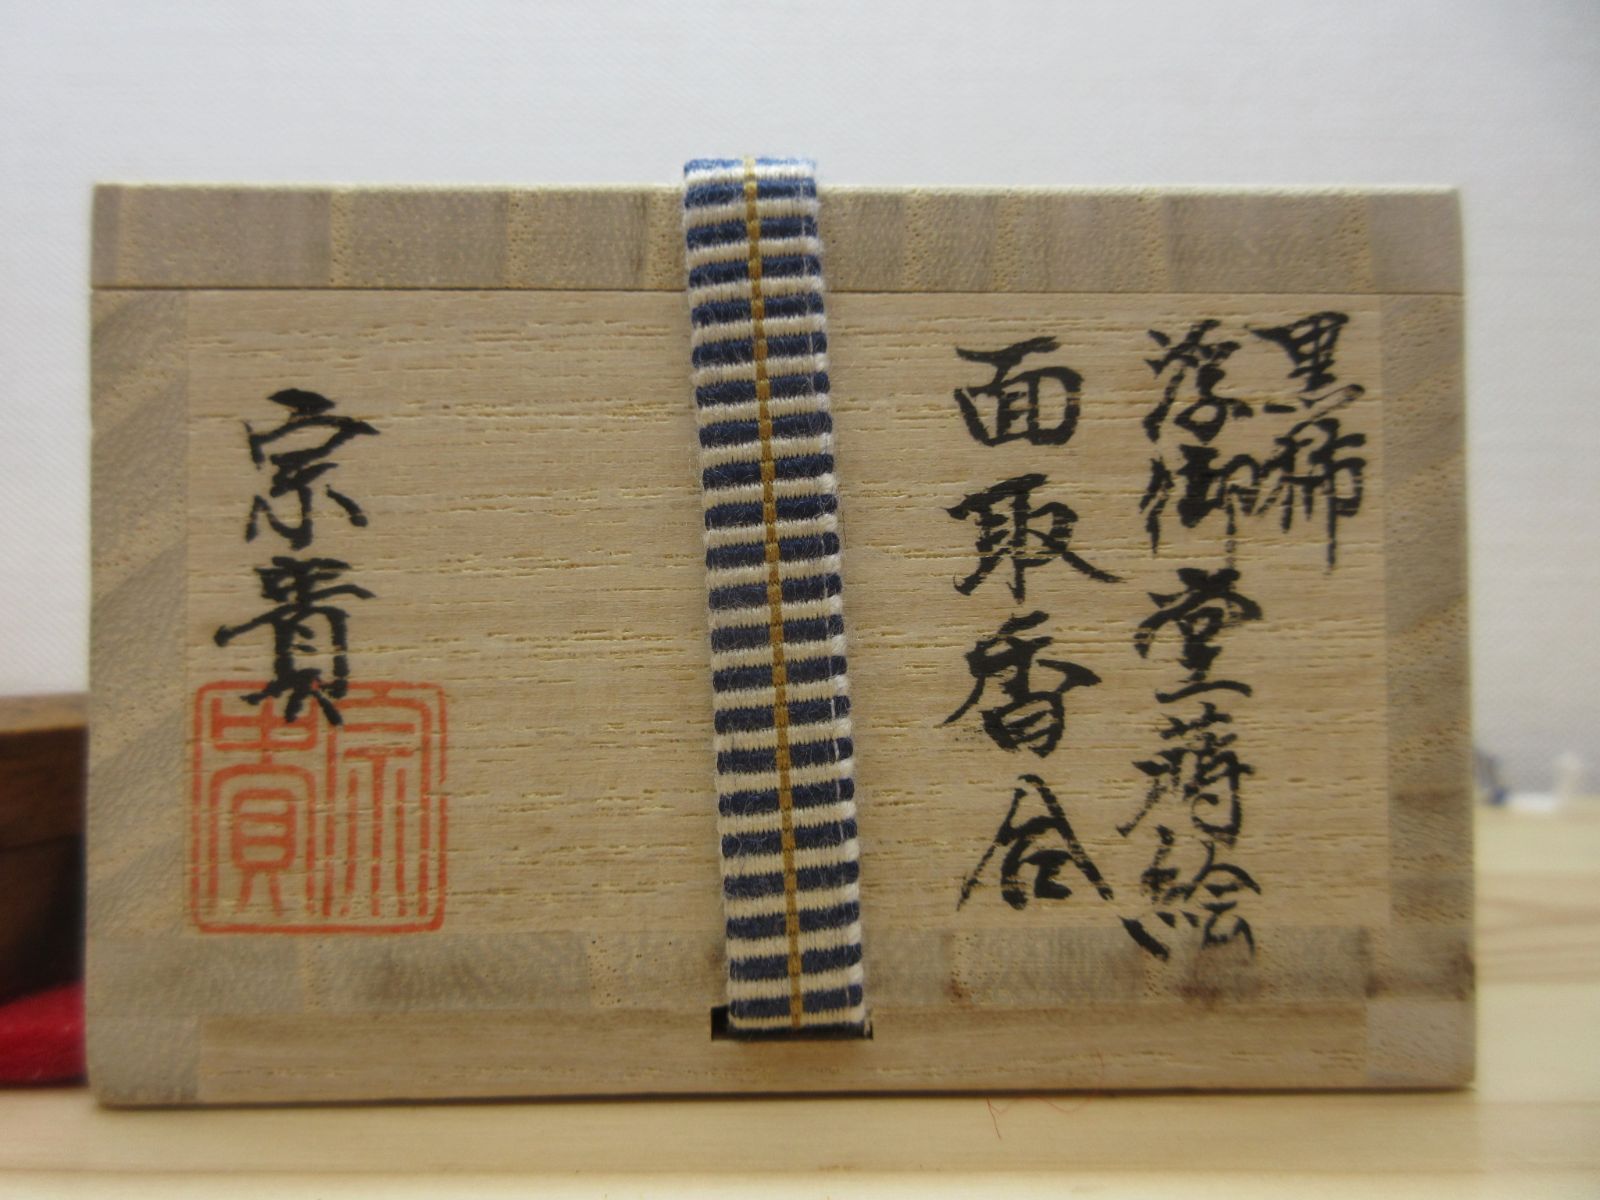 黒柿
浮御堂蒔絵
面取香合
宗貴
宗貴